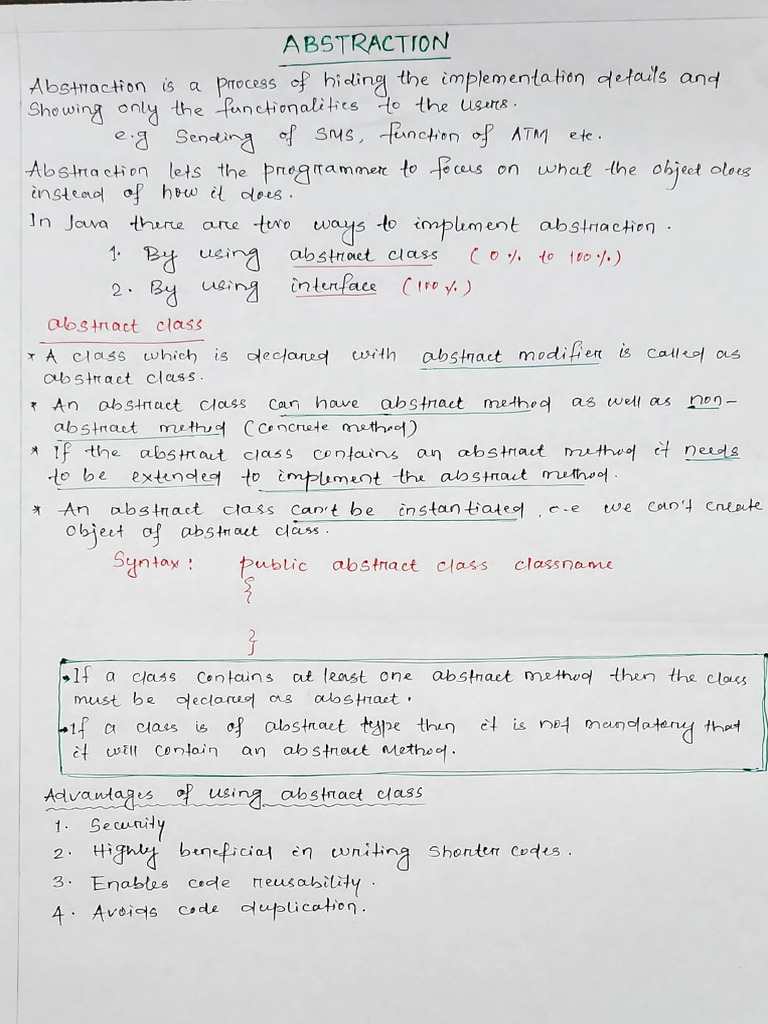 ABSTRACTION
Abstraction is a process of hiding the implementation details and
Showing only the functionalities to the users.
e.g Sending of SMS, function of ATM etc.
Abstraction lets the programmer to focus on what the object does
instead of how it does.
In Java there are two ways to implement abstraction.
1. By using abstract class (0% to 100%)
2. By using interface (100%)
abstract class
* A class which is declared with abstract modifier is called as
abstract class.
* An abstract class can have abstract method as well as non-
abstract method (concrete method)
* If the abstract class contains an abstract method it needs
to be extended to implement the abstract method.
* An abstract class can't be instantiated, i.e we can't create
object of abstract class.
Syntax: public abstract class classname
{
}
• If a class contains at least one abstract method then the class
must be declared as abstract.
• If a class is of abstract type then it is not mandatory that
it will contain an abstract method.
Advantages of using abstract class
1. Security
2. Highly beneficial in writing shorter codes.
3. Enables code reusability.
4. Avoids code duplication.